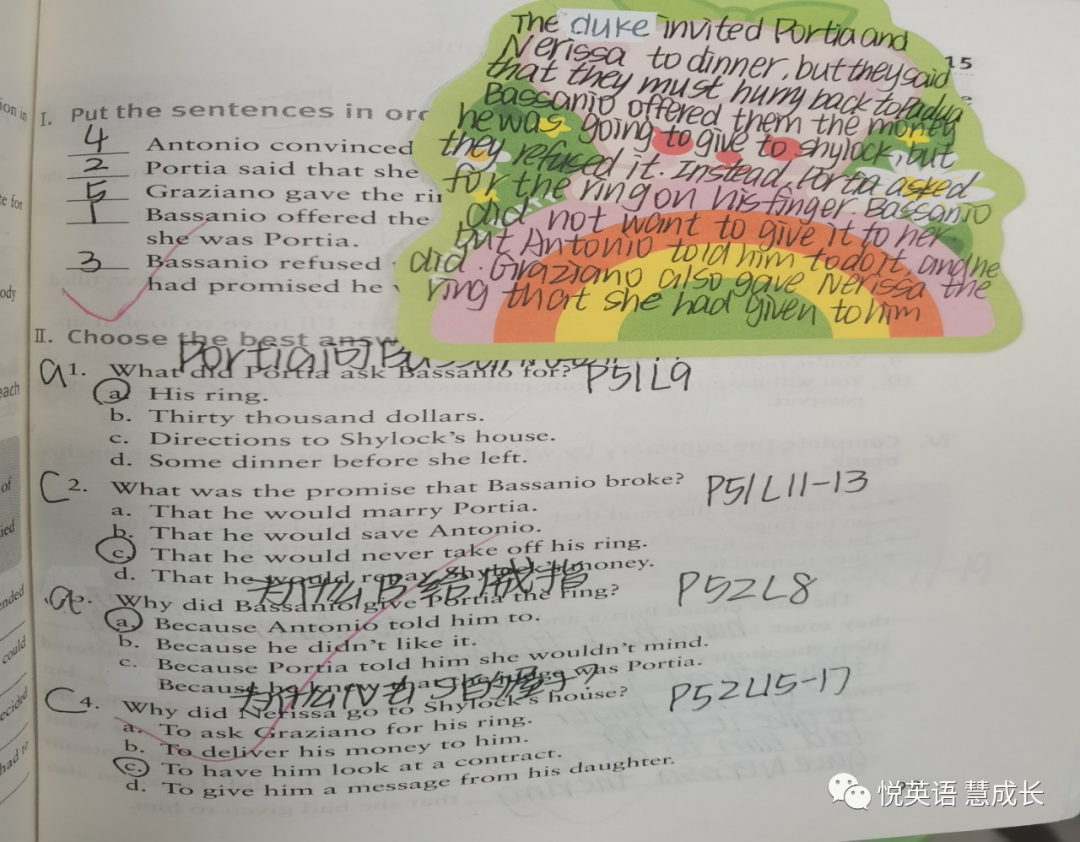 The duke invited Portia and
Nerissa to dinner, but they said
that they must hurry back to Padua
Bassanio offered them the money
he was going to give to shylock, but
they refused it. Instead, Portia asked
for the ring on his finger. Bassanio
did not want to give it to her
but Antonio told him to do it, and he
did. Graziano also gave Nerissa the
ring that she had given to him
15
I. Put the sentences in
4 Antonio convinced
2 Portia said that she
5 Graziano gave the
1 Bassanio offered the
she was Portia.
3 Bassanio refused
had promised he
II. Choose the best
Portia问
a 1. What did Portia ask Bassanio for? P51L9
a. His ring.
b. Thirty thousand dollars.
c. Directions to Shylock's house.
d. Some dinner before she left.
C 2. What was the promise that Bassanio broke? P51L11-13
a. That he would marry Portia.
b. That he would save Antonio.
c. That he would never take off his ring.
d. That he would repay Shylock's money.
为什么B给戒指
a Why did Bassanio give Portia the ring? P52L8
a. Because Antonio told him to.
b. Because he didn't like it.
c. Because Portia told him she wouldn't mind.
Because he knew that the judge was Portia.
为什么N去S的屋子?
C 4. Why did Nerissa go to Shylock's house? P52L15-17
a. To ask Graziano for his ring.
b. To deliver his money to him.
c. To have him look at a contract.
d. To give him a message from his daughter.
ion in
e for
ody
each
of
ied
ended
could
ecided
had to
悦英语 慧成长